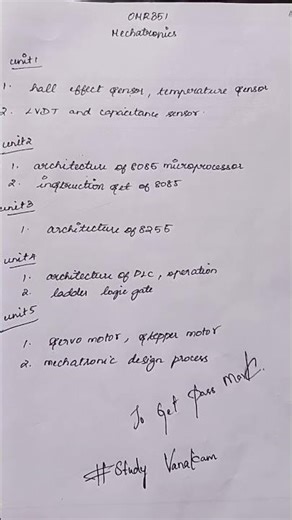 OMR351
Mechatronics
unit 1
1. hall effect sensor, temperature sensor
2. LVDT and capacitance sensor.
unit 2
1. architecture of 8085 microprocessor
2. instruction set of 8085
unit 3
1. architecture of 8255
unit 4
1. architecture of PLC, operation
2. ladder logic gate
unit 5
1. servo motor, stepper motor
2. mechatronic design process
To Get pass Mark.
#Study Vanakam